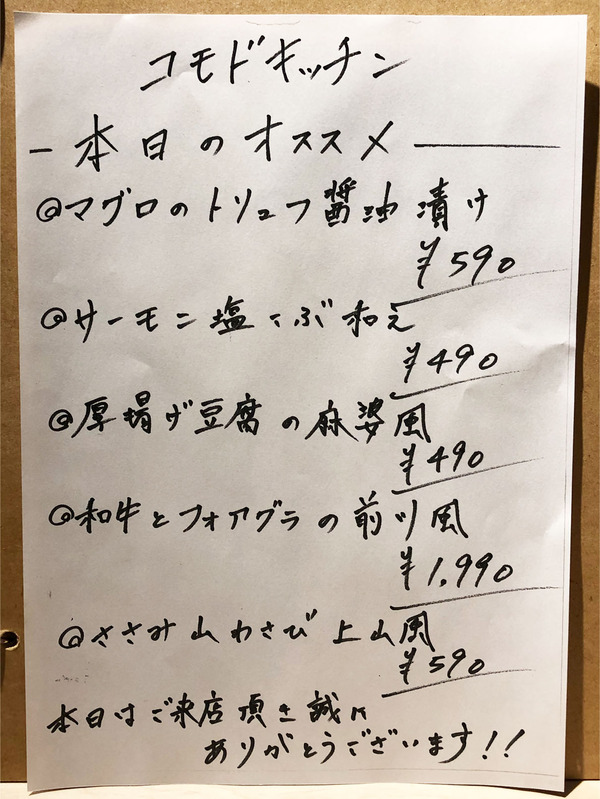 コモドキッチン
- 本日のオススメ ―
◎マグロのトリュフ醤油漬け
¥590
◎サーモン塩こぶ和え
¥490
◎厚揚げ豆腐の麻婆風
¥490
◎和牛とフォアグラの前川風
¥1,990
◎ささみ山わさび上山風
¥590
本日はご来店頂き誠に
ありがとうございます!!